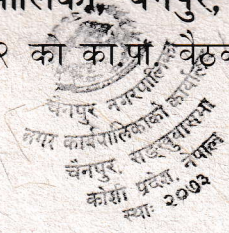 चैनपुर,
२ को का.पा. बैठक
चैनपुर नगरपालिका
नगर कार्यपालिकाको कार्यालय
चैनपुर, सङ्खुवासभा
कोशी प्रदेश, नेपाल
स्था: २०७३